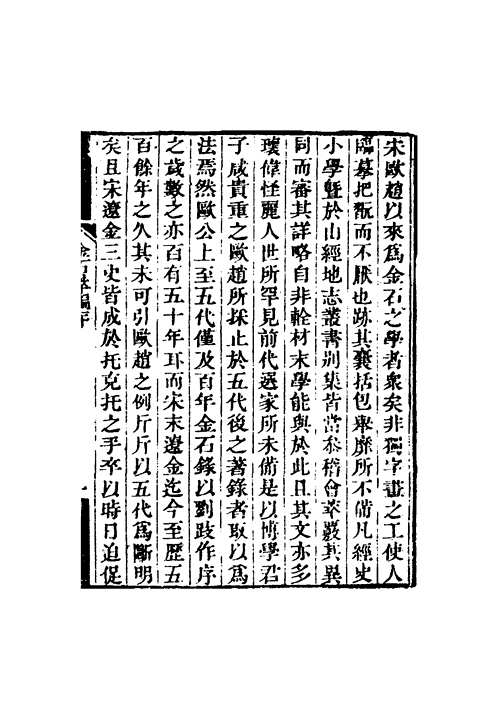 宋歐趙以來爲金石之學者衆矣非獨字畫之工使人
臨摹把翫而不厭也跡其囊括包舉靡所不備凡經史
小學暨於山經地志叢書別集皆當參稽會萃覈其異
同而審其詳略自非輇材末學能與於此且其文亦多
瓌偉怪麗人世所罕見前代選家所未備是以博學君
子咸貴重之歐趙所採止於五代後之著錄者取以爲
法焉然歐公上至五代僅及百年金石錄以劉跂作序
之歲數之亦百有五十年耳而宋末遼金迄今至歷五
百餘年之久其未可引歐趙之例斤斤以五代爲斷明
矣且宋遼金三史皆成於托克托之手卒以時日迫促
金石萃編序
一